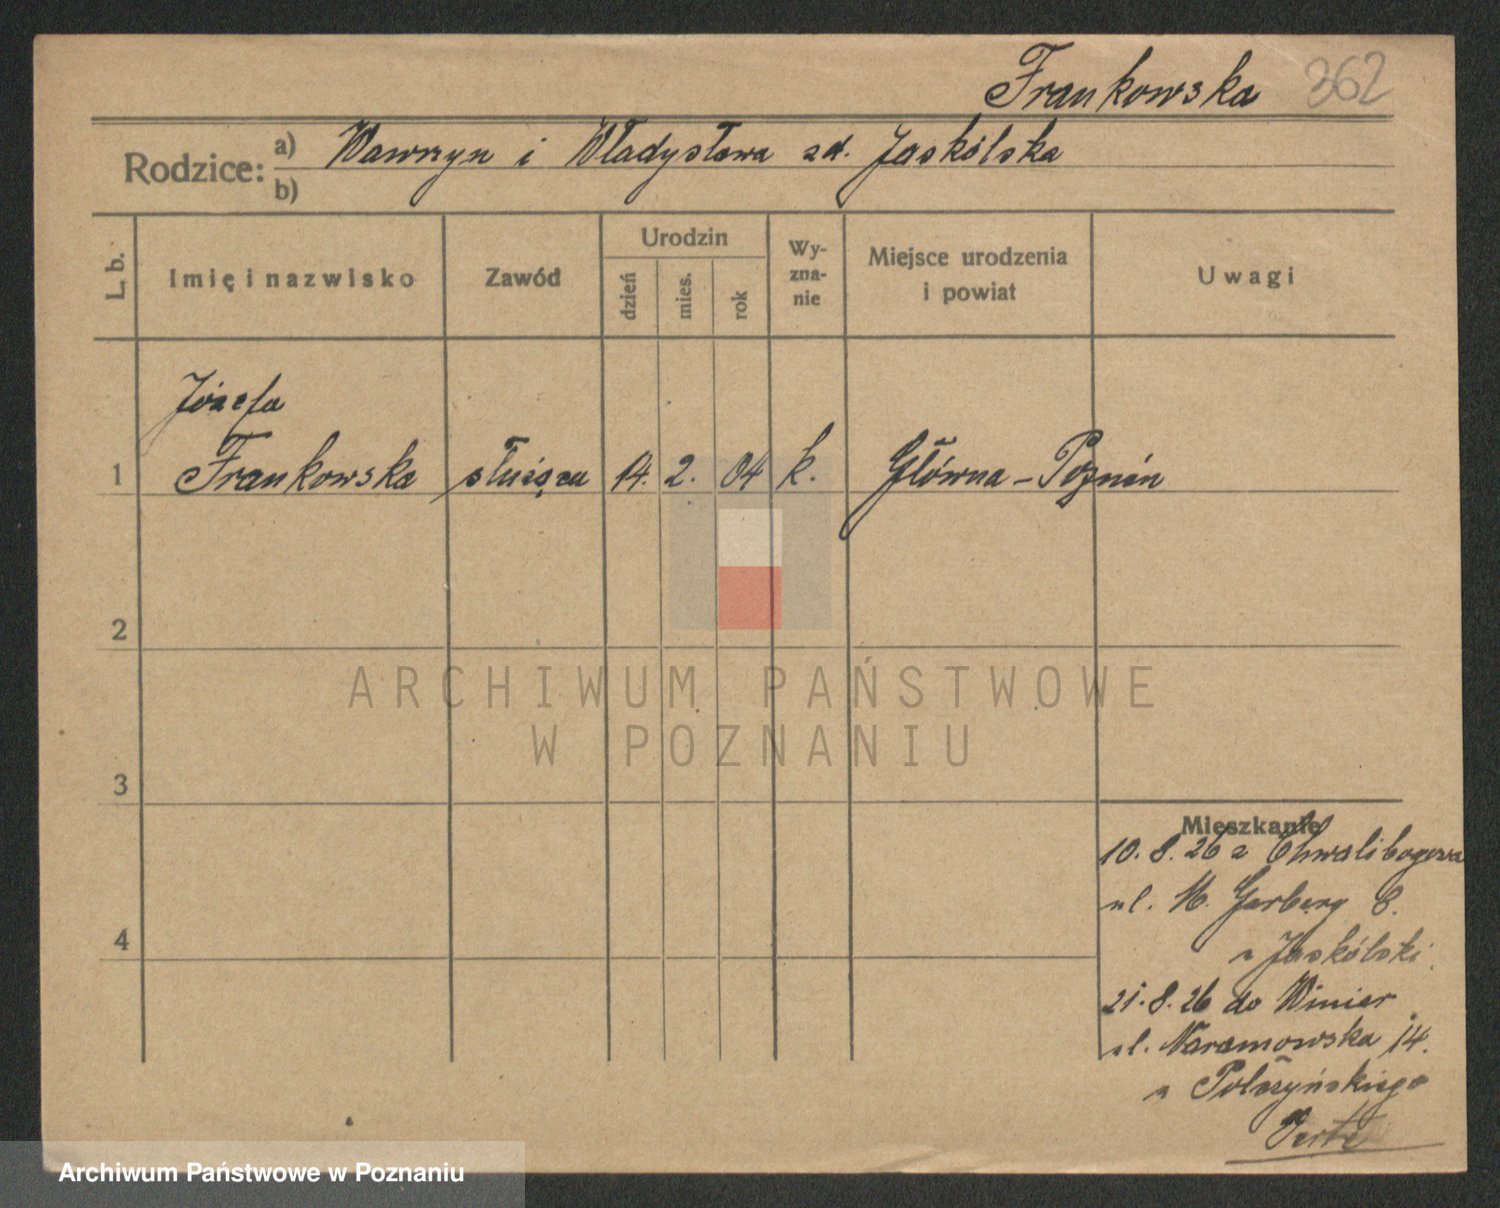 Frankowska 362
Rodzice: a) Wawrzyn i Władysława zd. Jaskólska
b)
L. b. Imię i nazwisko Zawód Urodzin dzień mies. rok Wy-zna-nie Miejsce urodzenia i powiat Uwagi
Józefa
1 Frankowska służąca 14. 2. 04 k. Główna - Poznań
2
ARCHIWUM PAŃSTWOWE
W POZNANIU
3
Mieszkanie
10. 8. 26 z Chwalibogowa
ul. M. Garbary 8.
4
u Jaskólski
21. 8. 26 do Winiar
ul. Naramowska 14.
u
Verte
Archiwum Państwowe w Poznaniu